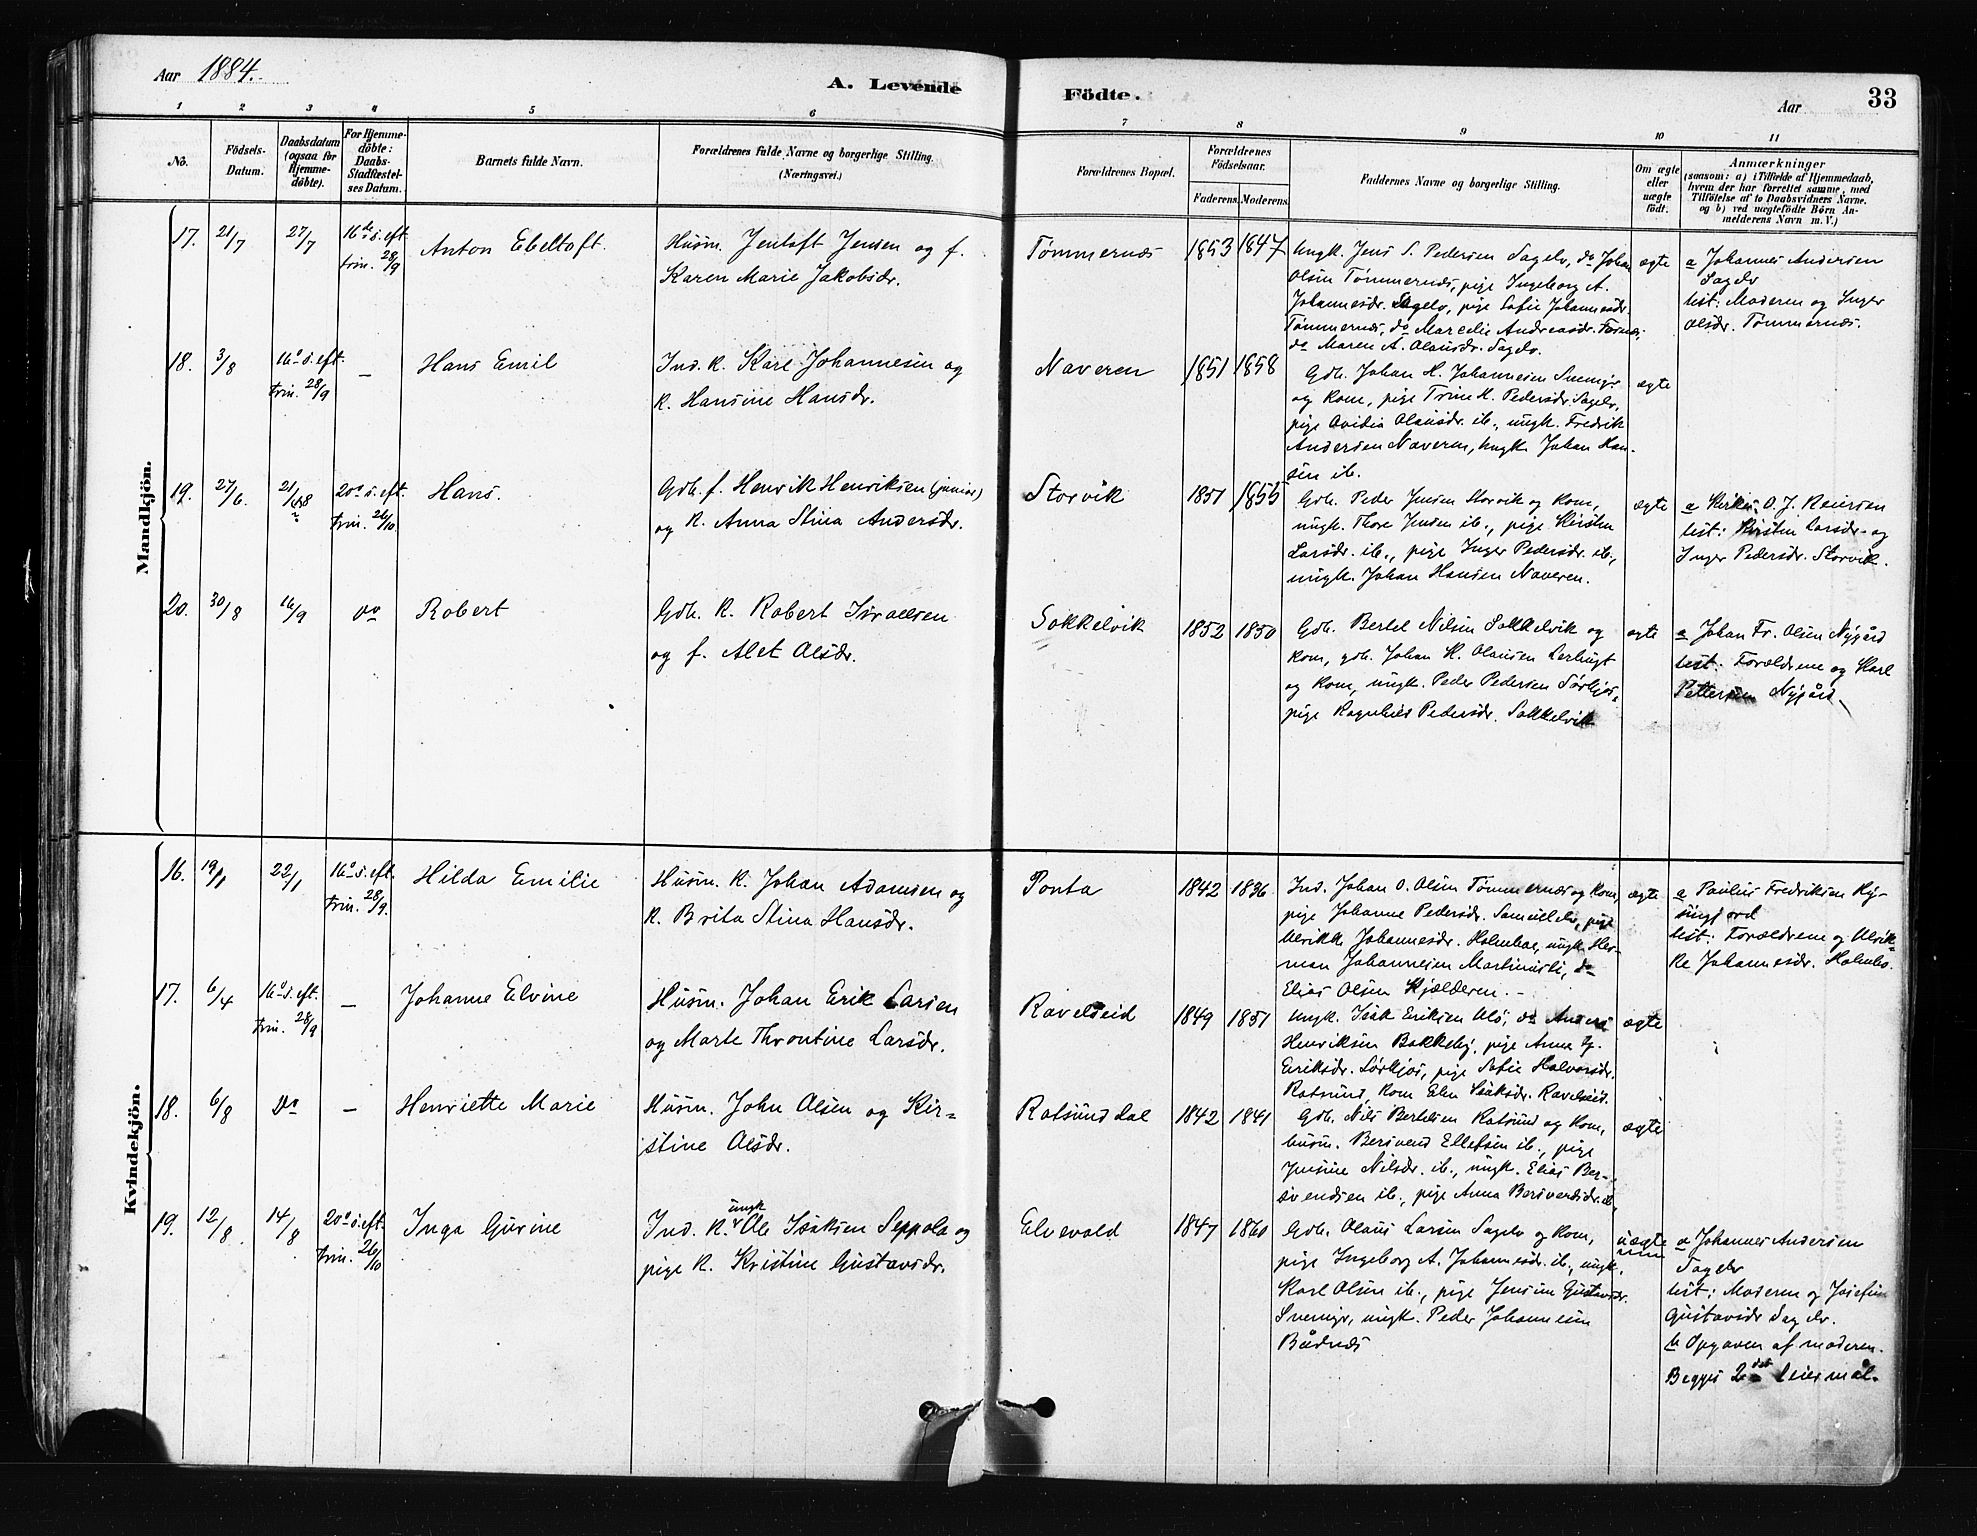 Aar 1884.
A. Levende Födte.
Aar 33
1 2 3 4 5 6 7 8 9 10 11
No.
Födsels-Datum.
Daabsdatum (ogsaa for Hjemme-döbte).
For Hjemme-döbte: Daabs-Stadfæstel-ses Datum.
Barnets fulde Navn.
Forældrenes fulde Navne og borgerlige Stilling.
(Næringsvei.)
Forældrenes Bopæl.
Forældrenes Födselsaar.
Faderens. Moderens.
Faddernes Navne og borgerlige Stilling.
Om ægte eller uægte födt.
Anmærkninger
(saasom: a) i Tilfælde af Hjemmedaab,
hvem der har forrettet samme, med
Tilföielse af to Daabsvidners Navne.
og b) ved uægtefödte Börn An-
melderens Navn m. V.)
Mandkjön.
17. 21/7 27/7 16de s. eft. trin. 28/9
Anton Ebeltoft.
Husm. Jentoft Jensen og f.
Karen Marie Jakobsdr.
Tømmernæs 1853 1847
Ungk. Jens S. Pedersen Sagelv, do Johan
Olsen Tømmernæs, pige Ingeborg A.
Johannesdr. Sagelv, pige Sofie Johannesdr.
Tømmernæs, do Marcelie Andreasdr.
do Maren A. Olausdr. Sagelv.
ægte
a Johannes Andersen
Sagelv
test: Moderen og Inger
Olsdr. Tømmernæs.
18. 3/8 16o s. eft. trin. 28/9 —
Hans Emil
Ind. k. Karl Johannesen og
k. Hansine Hansdr.
Naveren 1851 1858
Gdb. Johan H. Johannesen
og kone, pige Trine K. Pedersdr. Sagelv,
pige Ovidia Olausdr. ib., ungk. Fredrik
Andersen Naveren, ungk. Johan Han-
sen ib.
ægte
19. 27/6. 21/8 20o s. eft. trin. 26/10.
Hans.
Gdb. f. Henrik Henriksen (junior)
og k. Anna Stina Andersdr.
Storvik 1851 1855
Gdb. Peder Jensen Storvik og kone,
ungk. Thore Jensen ib., pige Kirsten
Larsdr. ib., pige Inger Pedersdr. ib.,
ungk. Johan Hansen Naveren.
ægte
a Kirkes. O. J. Reiersen
test: Kirsten Larsdr. og
Inger Pedersdr. Storvik.
20. 30/8 16/9 do
Robert
Gdb. k. Robert Israelsen
og f. Alet Olsdr.
Sokkelvik 1852 1850
Gdb. Bertel Nilsen Sokkelvik og
kone, gdb. Johan H. Olausen
og kone, ungk. Peder Pedersen Sørkjos,
pige Ragnhild Pedersdr. Sokkelvik
ægte
a Johan Fr. Olsen Nygård
test: Forældrene og Karl
Pettersen Nygård.
Kvindekjön.
16. 19/1 22/1 16o s. eft. trin. 28/9.
Hilda Emilie
Husm. k. Johan Adamsen og
k. Brita Stina Hansdr.
Ponta 1842 1836
Ind. Johan O. Olsen Tømmernæs og kone,
pige Johanne Pedersdr. Samuelelv, pige
Ulrikke Johannesdr. Holmbo, ungk. Her-
man Johannesen, do
Elias Olsen Kjælderen. –
ægte
a Paulus Fredriksen
test: Forældrene og Ulrik-
ke Johannesdr. Holmbo.
17. 6/4 16o s. eft. trin. 28/9 —
Johanne Elvine
Husm. Johan Erik Larsen
og Marte Throntine Larsdr.
Ravelseid 1849 1851
Ungk. Isak Eriksen Ulø, do Anders
Henriksen Bakkeby, pige Anna
Eriksdr. Sørkjos, pige Sofie Halvorsdr.
Rotsund, kone Elen Isaksdr. Ravelseid.
ægte
18. 6/8 do –
Henriette Marie
Husm. John Olsen og Kir-
stine Olsdr.
Rotsunddal 1842 1841
Gdb. Nils Bertelsen Rotsund og kone,
husm. Bersvend Ellefsen ib., pige
Jensine Nilsdr. ib., ungk. Elias Ber-
svendsen ib., pige Anna Bersvendsdr. ib.
ægte
19. 12/8. 14/8 20o s. eft. trin. 26/10
Inga Gurine
Ind. k. ungk Ole Isaksen Seppola og
pige k. Kristine Gustavsdr.
Elvevold 1847 1860
Gdb. Olaus Larsen Sagelv og kone,
pige Ingeborg A. Johannesdr. ib., ungk.
Karl Olsen ib., pige Jensine Gustavsdr.
ungk. Peder Johannesen
Bådnæs
uægte
a Johannes Andersen
Sagelv
test: Moderen og Josefine
Gustavsdr Sagelv.
b Opgaven af moderen.
Begges 2det leiermål.